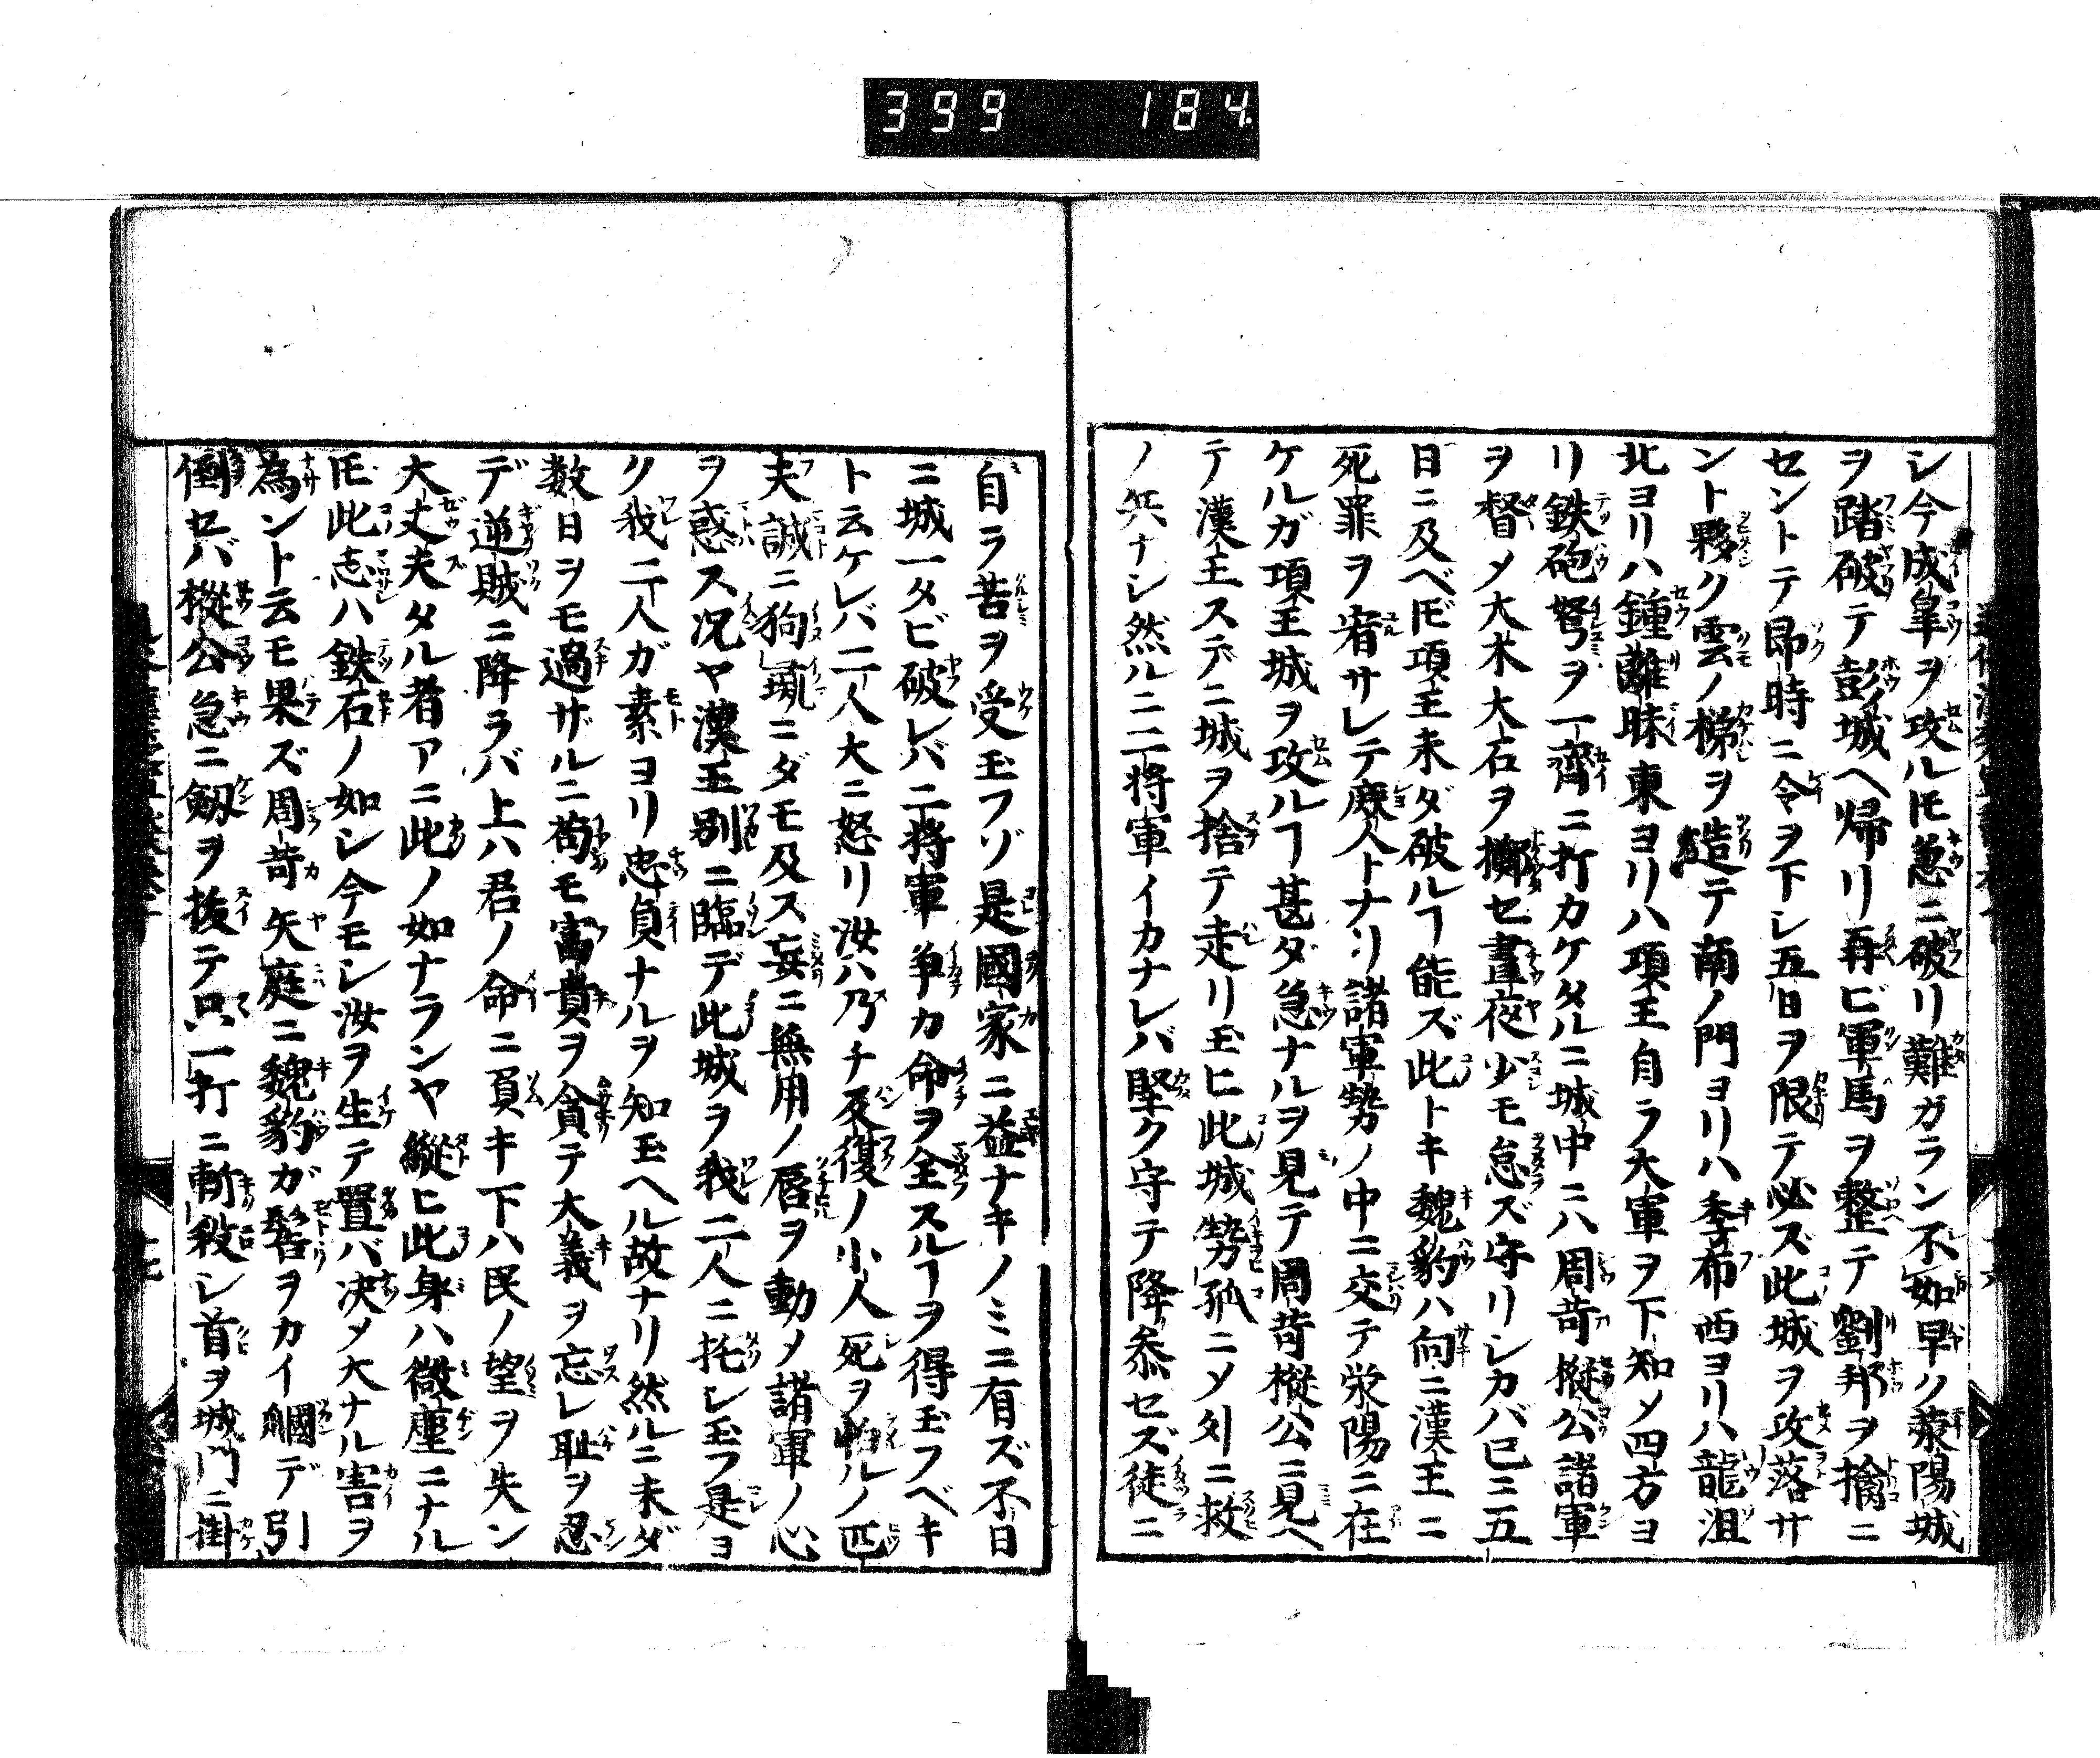 399 184
シ今成皐ヲ攻ルㇳモ急ニ破リ難ガラン不如早ク滎陽城
ヲ踏破テ彭城ヘ帰リ再ビ軍馬ヲ整テ劉邦ヲ擒ニ
セントテ即時ニ令ヲ下シ五日ヲ限テ必ス此城ヲ攻落サ
ント夥ク雲ノ梯ヲ造テ南ノ門ヨリハ季布西ヨリハ龍沮
北ヨリハ鍾離昧東ヨリハ項王自ラ大軍ヲ下知メ四方ヨ
リ鉄砲弩ヲ一齊ニ打カケタルニ城中ニハ周苛樅公諸軍
ヲ督メ大木大石ヲ擲セ晝夜少モ怠ズ守リシカバ已ニ五
日ニ及ベㇳモ項王未ダ破ルヿ能ズ此トキ魏豹ハ向ニ漢王ニ
死罪ヲ宥サレテ庶人トナリ諸軍勢ノ中ニ交テ滎陽ニ在
ケルガ項王城ヲ攻ルヿ甚ダ急ナルヲ見テ周苛樅公ニ見ヘ
テ漢王ステニ城ヲ捨テ走リ玉ヒ此城勢孤ニメ外ニ救
ノ兵ナシ然ルニ二将軍イカナレバ堅ク守テ降参セズ徒ニ
自ラ苦ヲ受玉フゾ是國家ニ益ナキノミニ有ズ不日
ニ城一タビ破レバ二将軍争カ命ヲ全スルヿヲ得玉フベキ
ト云ケレバ二人大ニ怒リ汝ハ乃チ反復ノ小人死ヲ怕ルノ匹
夫誠ニ狗彘ニダモ及ス妄ニ無用ノ唇ヲ動メ諸軍ノ心
ヲ惑ス况ヤ漢王別ニ臨デ此城ヲ我二人ニ托シ玉フ是ヨ
ク我二人ガ素ヨリ忠貞ナルヲ知玉ヘル故ナリ然ルニ未ダ
数日ヲモ過ザルニ苟モ富貴ヲ貪テ大義ヲ忘レ耻ヲ忍
デ逆賊ニ降ラバ上ハ君ノ命ニ負キ下ハ民ノ望ヲ失ン
大丈夫タル者アニ此ノ如ナランヤ縦ヒ此身ハ微塵ニナル
ㇳモ此志ハ鉄石ノ如シ今モシ汝ヲ生テ置バ决メ大ナル害ヲ
為ント云モ果ズ周苛矢庭ニ魏豹ガ髻ヲカイ𢶍デ引
倒セバ樅公急ニ劔ヲ抜テ只一打ニ斬殺シ首ヲ城門ニ掛